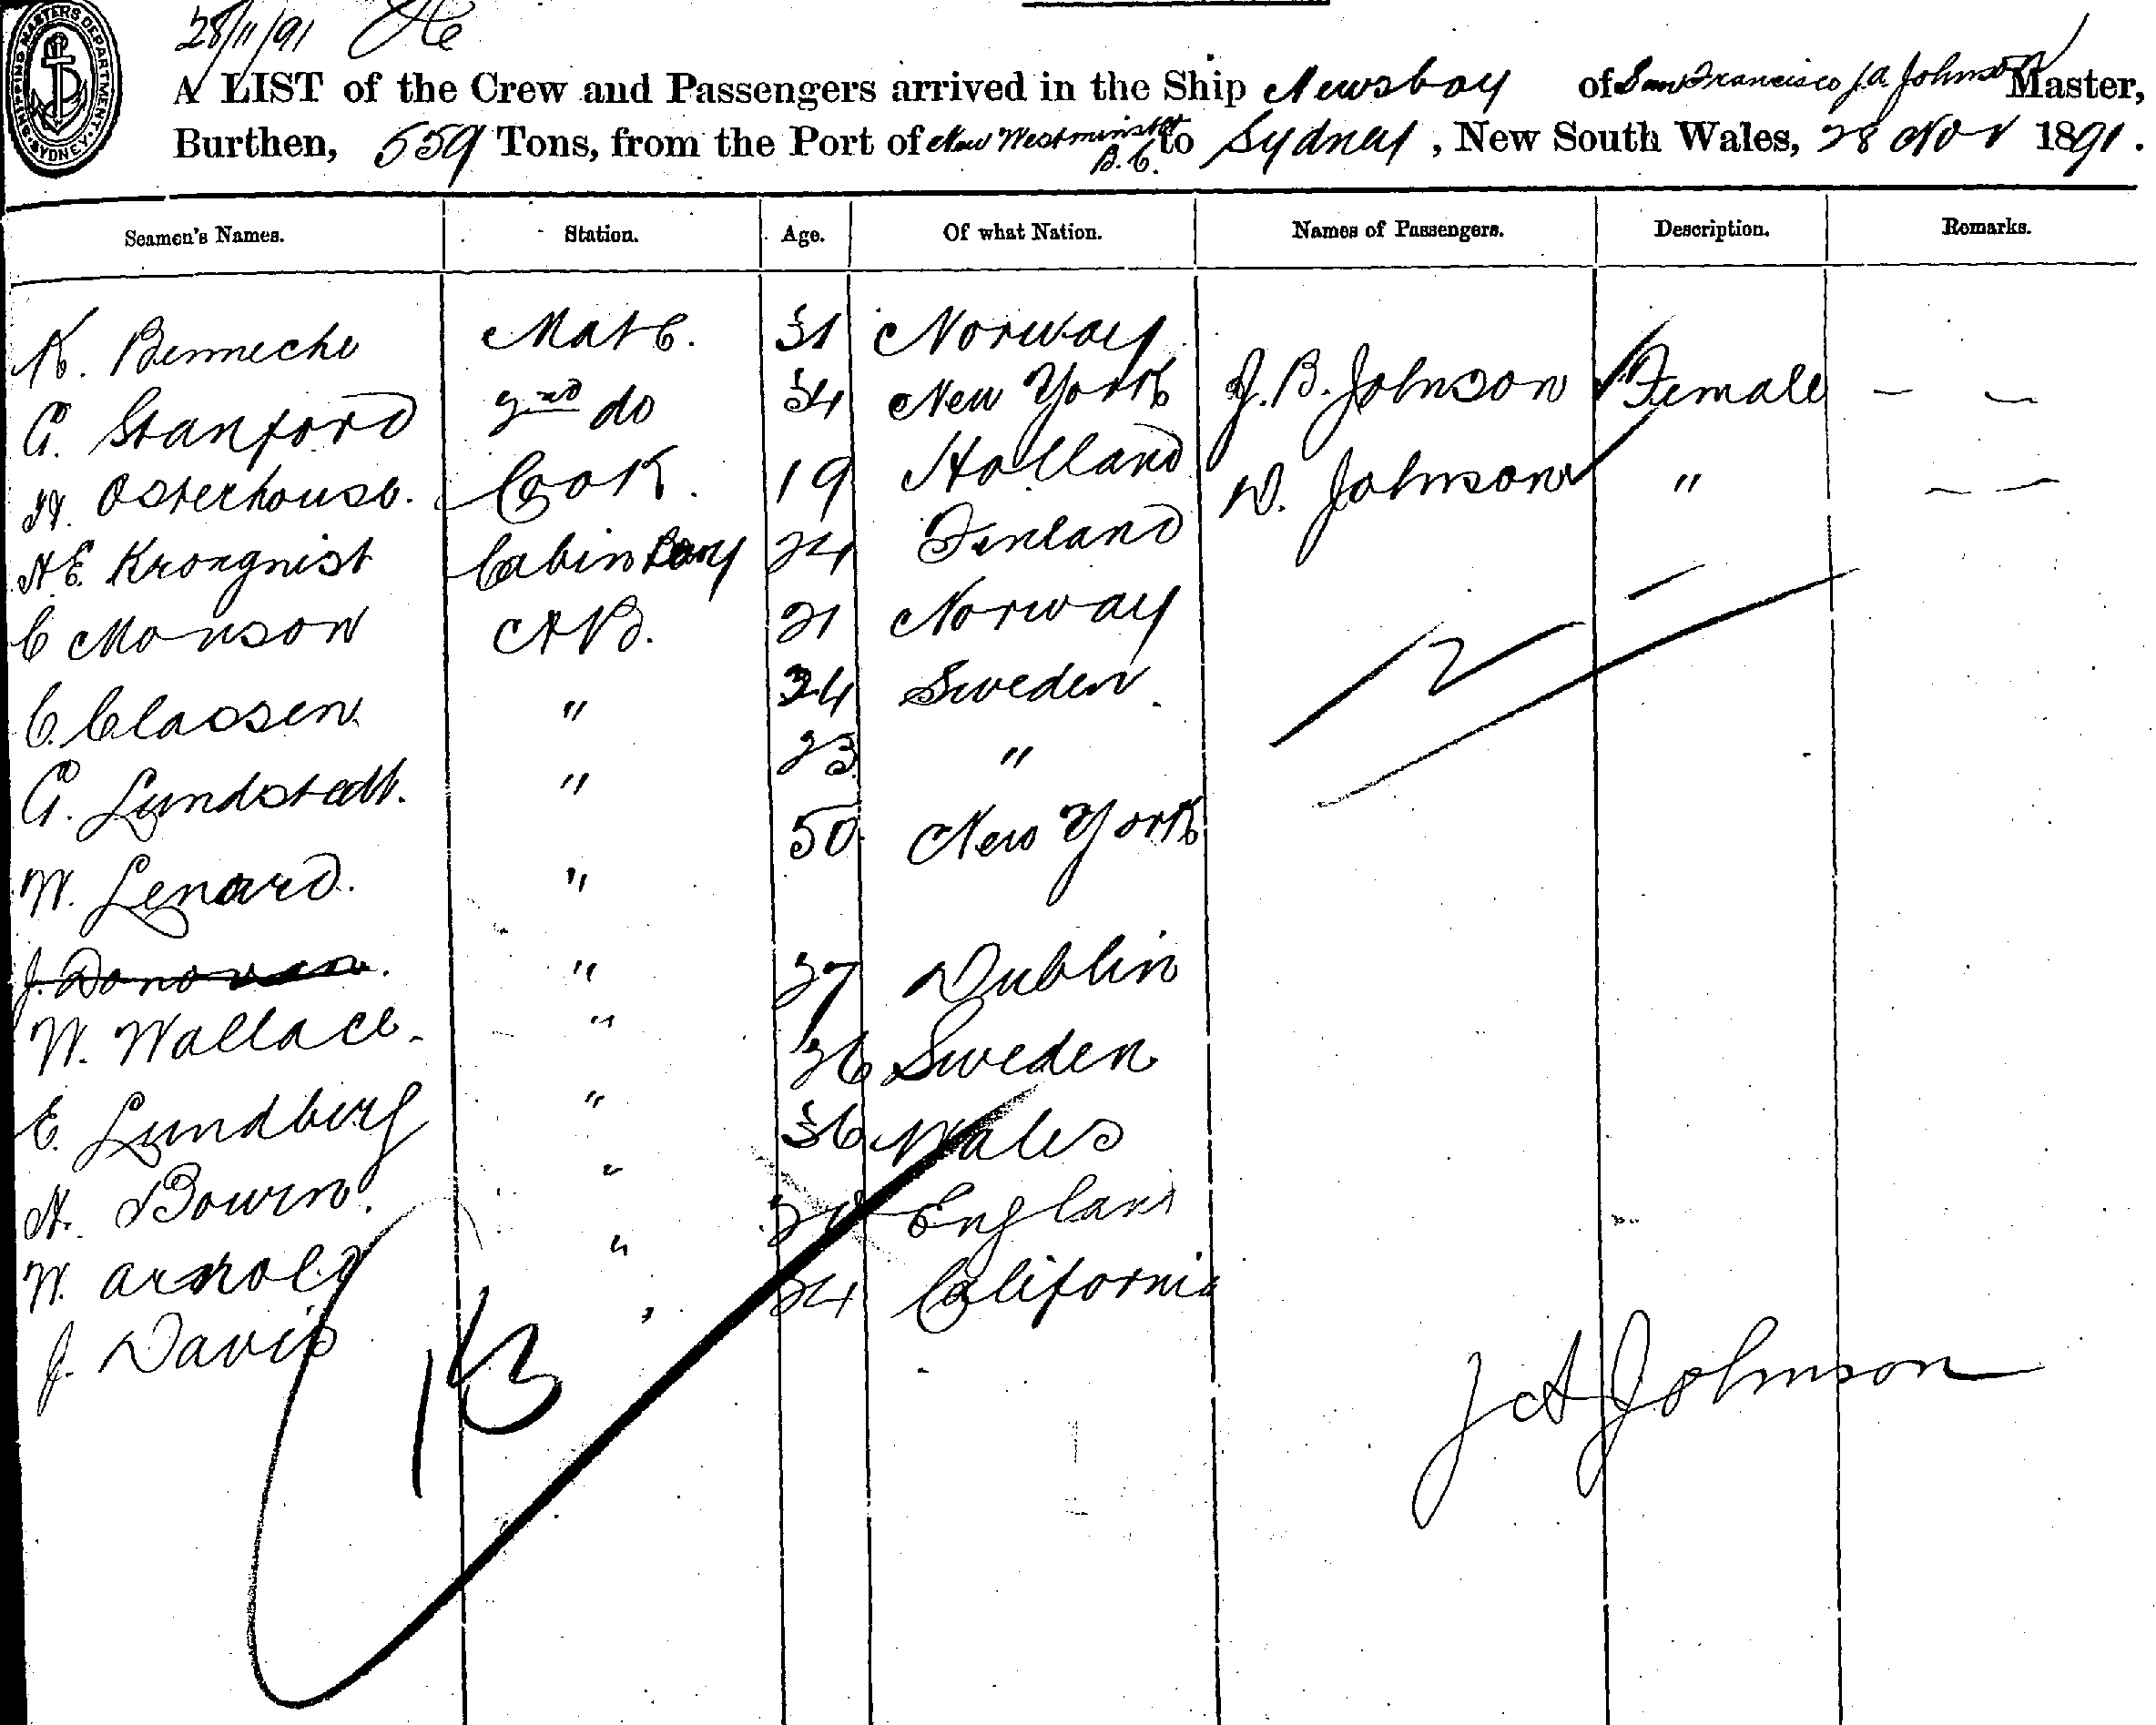 28/11/91
SHIPPING MASTERS DEPARTMENT. SYDNEY
A LIST of the Crew and Passengers arrived in the Ship Newsboy of San Francisco J.A. Johnson Master,
Burthen, 559 Tons, from the Port of New Westminster B.C. to Sydney, New South Wales, 28 Nov 1891.
Seamen's Names. Station. Age. Of what Nation. Names of Passengers. Description. Remarks.
K. Benneche Mate. 31 Norway
G. Stanford 2nd do 34 New York J. B. Johnson Female — —
H. Osterhouse. Cook. 19 Holland W. Johnson " — —
A E. Kronqnist Cabin Boy 24 Finland
C Monson A B. 21 Norway
C. Classen " 24 Sweden.
G. Lundstedt. " 23 "
W. Lenard. " 50 New York
J. Donovan. " 37 Dublin
W. Wallace. " 36 Sweden
E. Lundberg " 36 Wales
H. Bowen. " England
W. Arnold " 24 California
J. Davis "
12
13
J A Johnson